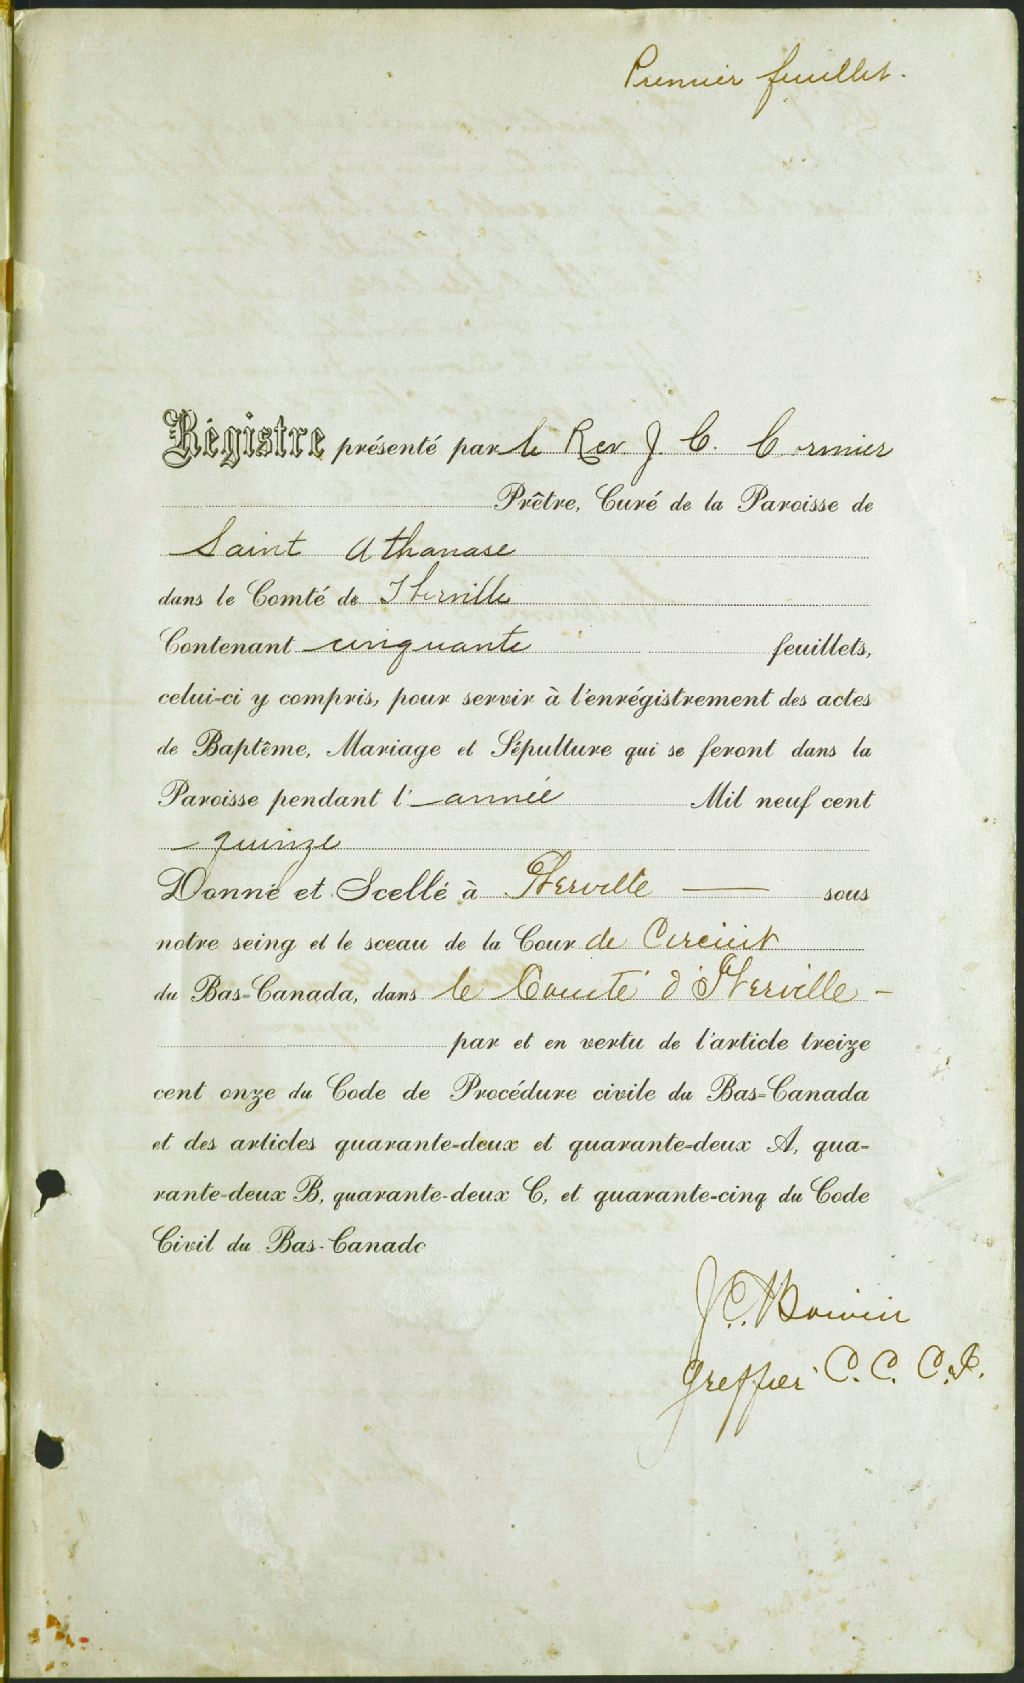 Premier feuillet.
Régistre présenté par le Rev J. C. Cormier
Prêtre, Curé de la Paroisse de
Saint Athanase
dans le Comté de Iberville
Contenant cinquante feuillets,
celui-ci y compris, pour servir à l'enrégistrement des actes
de Baptême, Mariage et Sépulture qui se feront dans la
Paroisse pendant l'année Mil neuf cent
quinze
Donné et Scellé à Iberville — sous
notre seing et le sceau de la Cour de Circuit
du Bas-Canada, dans le Comté d'Iberville —
par et en vertu de l'article treize
cent onze du Code de Procédure civile du Bas-Canada
et des articles quarante-deux et quarante-deux A, qua-
rante-deux B, quarante-deux C, et quarante-cinq du Code
Civil du Bas-Canada
J. C. Boivin
Greffier C. C. C. I.